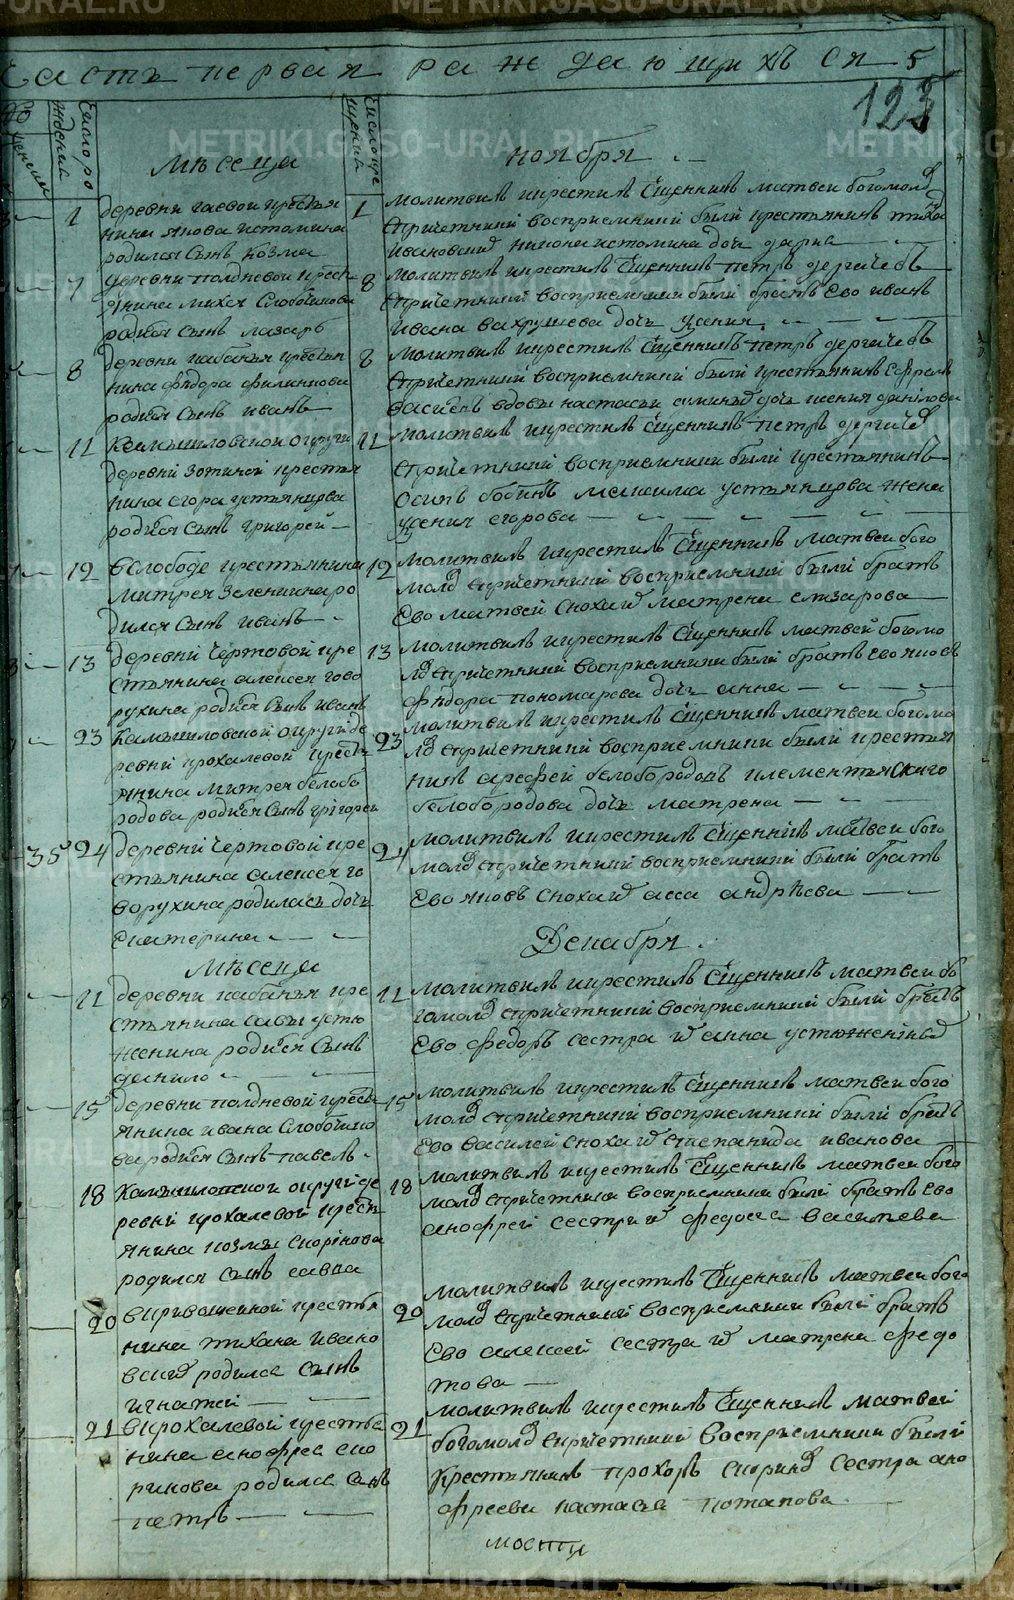 Часть первая раждающихся 5
123
Число рождения
Число крещения
Мѣсеца
ноября
1
деревни гаевой крестья
нина якова истомина
родился сынъ козма
1
Молитвилъ икрестилъ Сщенникъ матвеи богомол
спричетники восприемники были крестьянинъ тиха
ивановской никона истомина дочь дарья
7
деревни полдневой крест
янина михея Слободчикова
родился сынъ лазарь
8
молитвилъ икрестилъ Сщенникъ петръ дергачевъ
спричетники восприемники были братъ Ево иванъ
ивана вахрушева дочь ксения
8
деревни кабанья крестьян
нина федора филинкова
родился сынъ иванъ
8
Молитвилъ икрестилъ Сщенникъ петръ дергачевъ
спричетники восприемники были крестьянинъ Ефремъ
вдовы настасьи дочь ксения данилова
11
Камышловской округи
деревни зотиной крестья
нина егора устьянцова
родился сынъ григорей
11
Молитвилъ икрестилъ Сщенникъ петръ дергачев
спричетники восприемники были крестьянинъ
осипъ бобинъ максима устьянцова жена
ксения егорова
12
вслободе крестьянина
митрея зеленина ро
дился сынъ иванъ
12
Молитвилъ икрестилъ Сщенникъ матвеи бого
мол спричетники восприемники были братъ
Ево матвей сноха матрена елизарова
13
деревни чертовой кре
стьянина алексея гово
рухина родился сынъ иванъ
13
Молитвилъ икрестилъ Сщенникъ матвей богомо
л спричетники восприемники были братъ Ево яковъ
федора пономарева дочь анна
23
Камышловской округи де
ревни прокалевой крестья
янина митрея белобо
родова родился сынъ григореи
23
Молитвилъ икрестилъ Сщенникъ матвеи богомо
л спричетники восприемники были крестья
нинъ арефей белобородовъ
белобородова дочь матрена
35
24
деревни чертовой кре
стьянина алексея го
ворухина родилась дочь
Екатерина
24
Молитвилъ икрестилъ Сщенникъ матвеи бого
мол спричетники восприемники были братъ
Ево яковъ сноха асса андрѣева
Мѣсеца
Декабря
11
деревни кабанья кре
стьянина савы устю
женина родился сынъ
данило
11
Молитвилъ икрестилъ Сщенникъ матвеи бо
гомол спричетники восприемники были братъ
Ево федоръ сестра анна устюженины
15
деревни полдневой кресть
янина ивана Слободчико
ва родился сынъ павелъ
15
Молитвилъ икрестилъ Сщенникъ матвеи бого
мол спричетники восприемники были братъ
Ево василей сноха степанида иванова
18
Камышловской округи де
ревни прокалевой кресть
янина козмы скорінова
родился сынъ савва
18
Молитвилъ икрестилъ Сщенникъ матвеи бого
мол спричетники восприемники были братъ Ево
анофрей сестра федосья васильева
20
вкривошеиной крестья
нина тихана ивано
вских родился сынъ
игнатей
20
Молитвилъ икрестилъ Сщенникъ матвеи бого
мол спричетники восприемники были братъ
Ево алексей сестра матрена федо
това
21
впрокалевой крестья
нина анофрея ско
ринова родился сынъ
петръ
21
Молитвилъ икрестилъ Сщенникъ матвей
богомол спричетники восприемники были
крестьянинъ прохоръ скорин сестра ано
фреева настасья потапова
METRIKI.GASO-URAL.RU